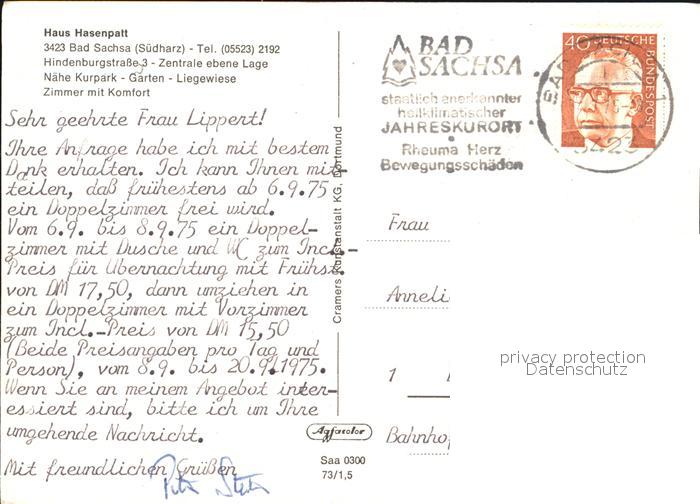 Haus Hasenpatt
3423 Bad Sachsa (Südharz) - Tel. (05523) 2192
Hindenburgstraße 3 - Zentrale ebene Lage
Nähe Kurpark - Garten - Liegewiese
Zimmer mit Komfort
Sehr geehrte Frau Lippert!
Ihre Anfrage habe ich mit bestem
Dank erhalten. Ich kann Ihnen mit-
teilen, daß frühestens ab 6.9.75
ein Doppelzimmer frei wird.
Vom 6.9. bis 8.9.75 ein Doppel-
zimmer mit Dusche und WC zum Incl.-
Preis für Übernachtung mit Frühst.
von DM 17,50, dann umziehen in
ein Doppelzimmer mit Vorzimmer
zum Incl.-Preis von DM 15,50
(Beide Preisangaben pro Tag und
Person), vom 8.9. bis 20.9.1975.
Wenn Sie an meinem Angebot inter-
essiert sind, bitte ich um Ihre
umgehende Nachricht.
Mit freundlichen Grüßen
Cramers Kunstanstalt KG, Dortmund
Agfacolor
Saa 0300
73/1,5
BAD
SACHSA
staatlich anerkannter
heilklimatischer
JAHRESKURORT
Rheuma Herz
Bewegungsschäden
40 DEUTSCHE
BUNDESPOST
3423
Frau
Anneli
1
Bahnho
privacy protection
Datenschutz